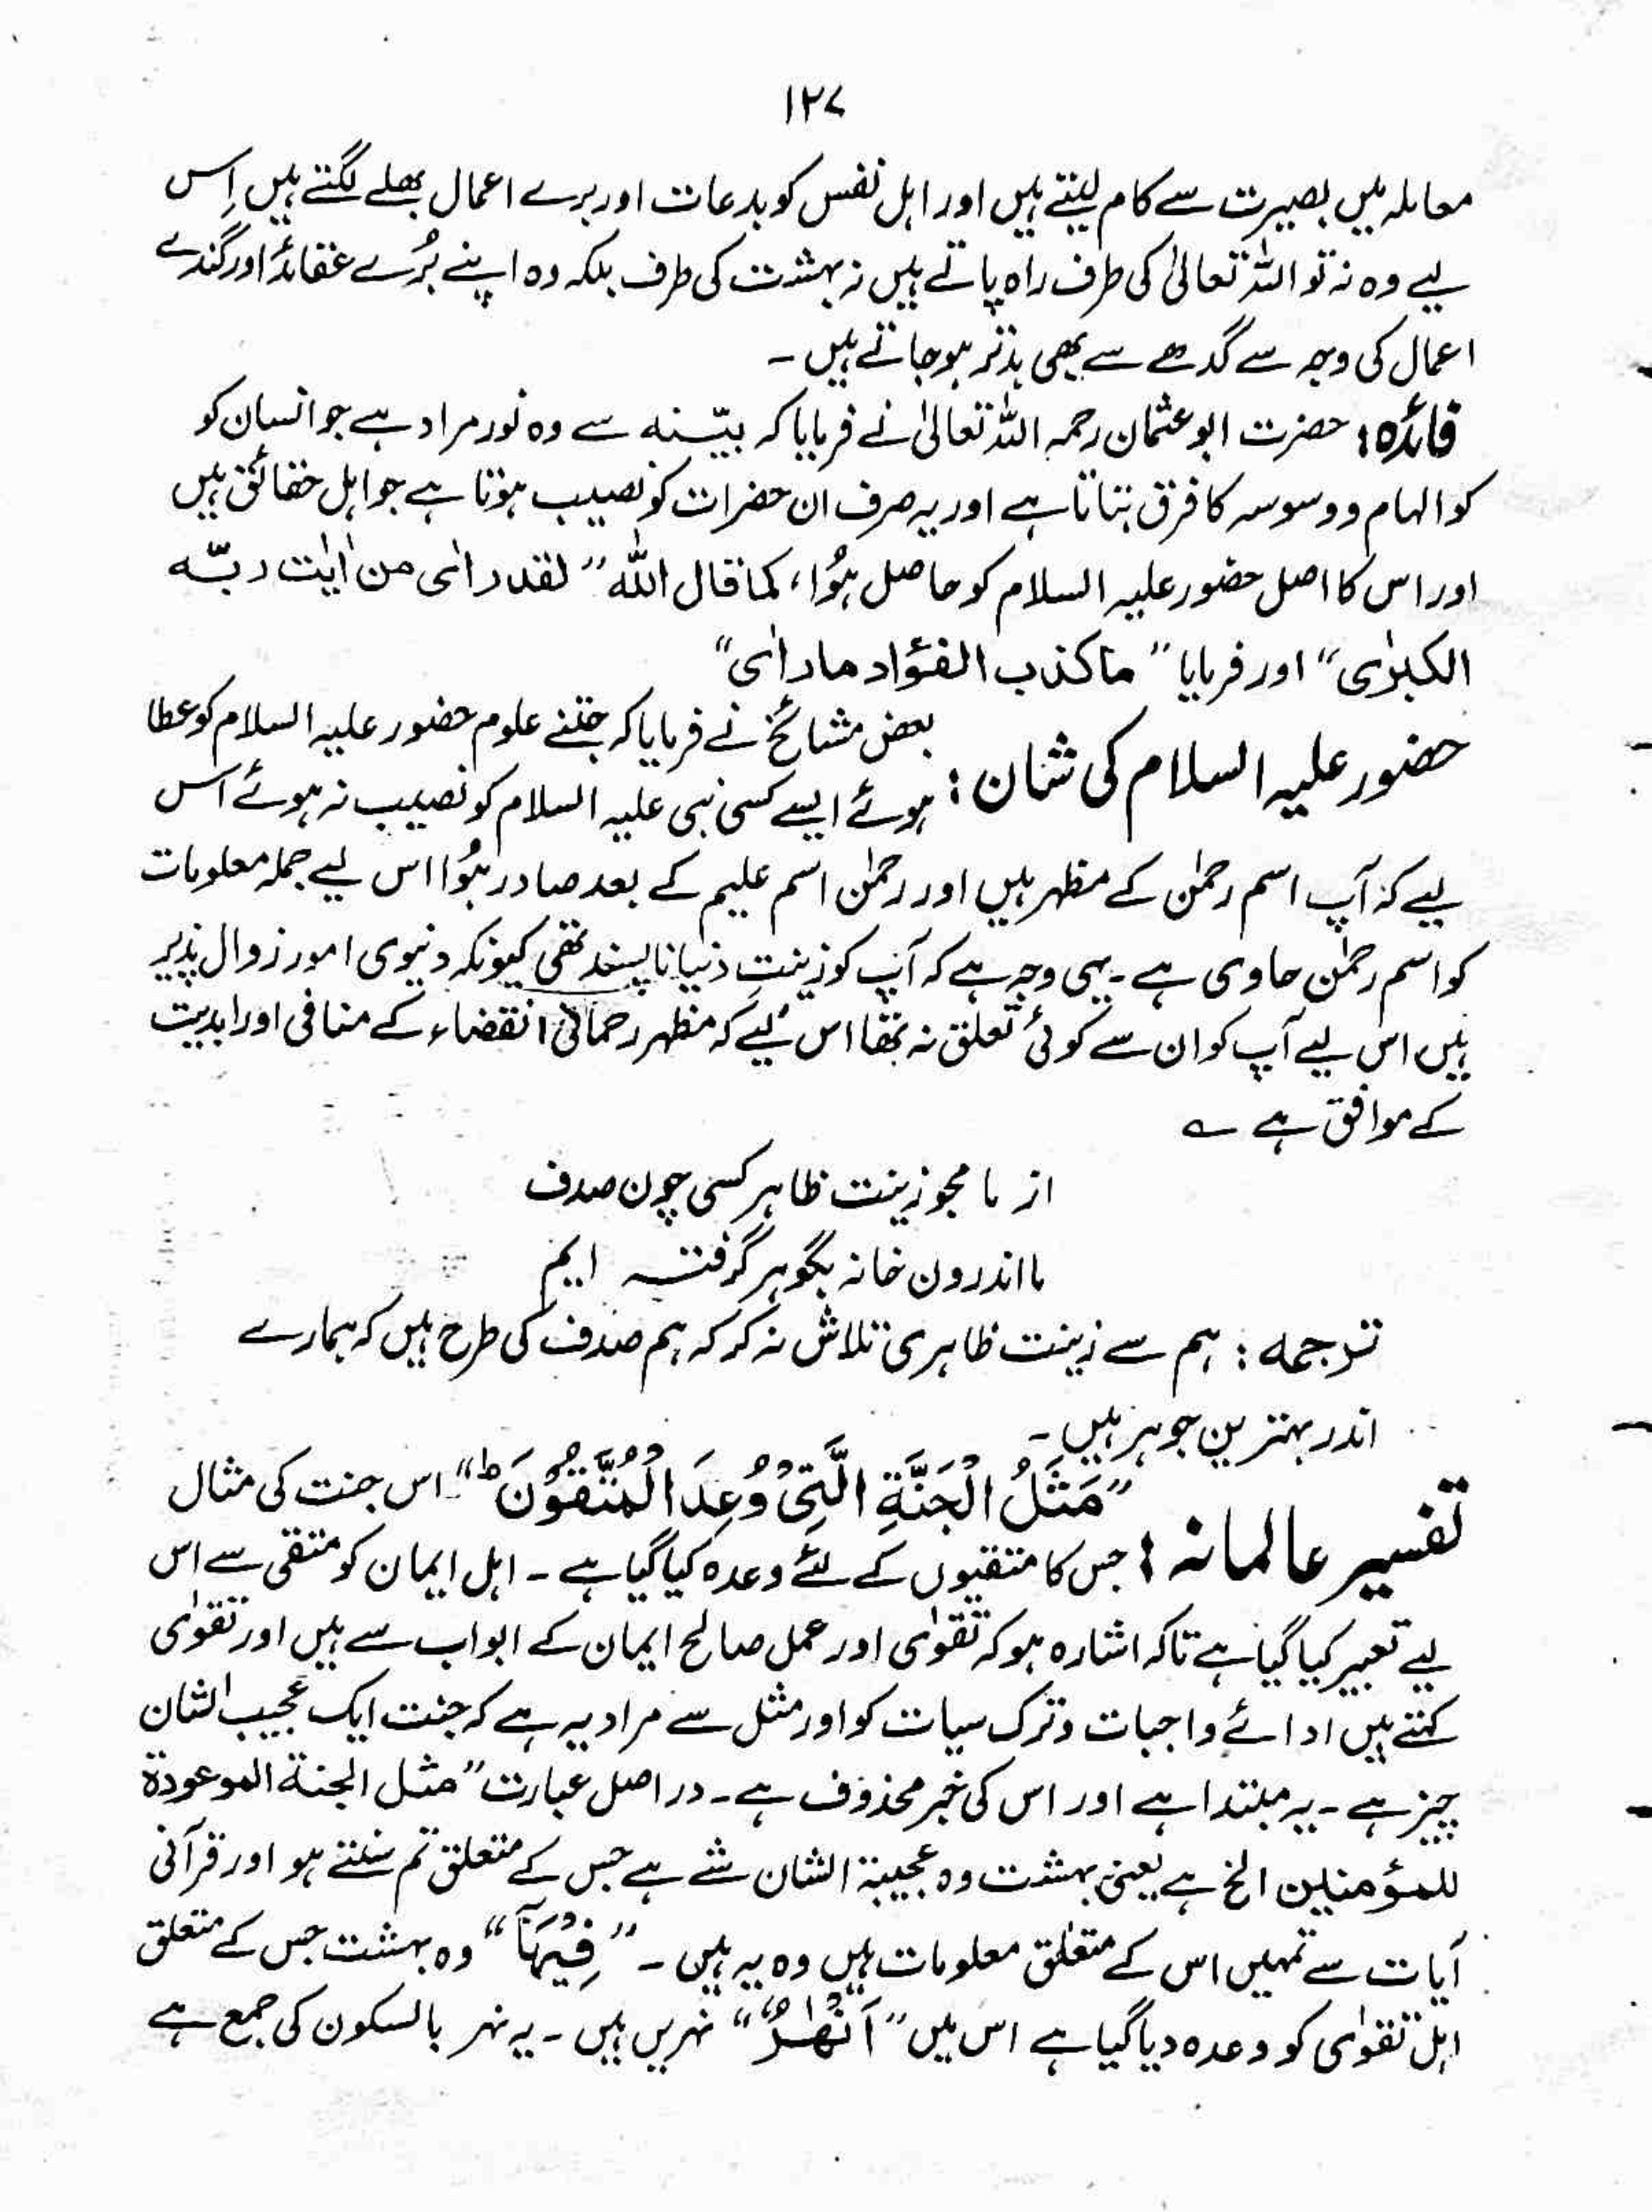 ۱۲۷
معاملہ میں بصیرت سے کام لیتے ہیں اور اہل نفس کو بدعات اور برے اعمال بھلے لگتے ہیں اِس
لیے وہ نہ تو اللہ تعالیٰ کی طرف راہ پاتے ہیں نہ بہشت کی طرف بلکہ وہ اپنے بُرے عقائد اور گندے
اعمال کی وجہ سے گدھے سے بھی بدتر ہو جاتے ہیں ۔
فائدہ : حضرت ابو عثمان رحمہ اللہ تعالیٰ نے فرمایا کہ بیّنہ سے وہ نور مراد ہے جو انسان کو
کو الہام و وسوسہ کا فرق بتاتا ہے اور یہ صرف ان حضرات کو نصیب ہوتا ہے جو اہل حقائق ہیں
اور اس کا اصل حضور علیہ السلام کو حاصل ہُوا ، کما قال اللہ " لقد راٰی من اٰیٰت ربّہ
الکبرٰی " اور فرمایا " ما کذب الفؤاد ما راٰی "
حضور علیہ السلام کی شان : بعض مشائخ نے فرمایا کہ جتنے علوم حضور علیہ السلام کو عطا
ہوئے ایسے کسی نبی علیہ السلام کو نصیب نہ ہوئے اس
لیے کہ آپ اسم رحمٰن کے مظہر ہیں اور رحمٰن اسم علیم کے بعد صادر ہُوا اس لیے جملہ معلومات
کو اسم رحمٰن حاوی ہے ۔ یہی وجہ ہے کہ آپ کو زینتِ دنیا ناپسند تھی کیونکہ دنیوی امور زوال پذیر
ہیں اس لیے آپ کو ان سے کوئی تعلق نہ تھا اس لیے کہ مظہر رحمانی انقضاء کے منافی اور ابدیت
کے موافق ہے ؎
از ما مجو زینت ظاہر کسی چون صدف
ما اندرون خانہ بگوہر گرفتہ ایم
ترجمہ : ہم سے زینت ظاہری تلاش نہ کر کہ ہم صدف کی طرح ہیں کہ ہمارے
اندر بہترین جوہر ہیں ۔
تفسیر عالمانہ : " مَثَلُ الْجَنَّةِ الَّتِیْ وُعِدَ الْمُتَّقُوْنَ ط " اس جنت کی مثال
جس کا متقیوں کے لئے وعدہ کیا گیا ہے ۔ اہل ایمان کو متقی سے اس
لیے تعبیر کیا گیا ہے تاکہ اشارہ ہو کہ تقوٰی اور عمل صالح ایمان کے ابواب سے ہیں اور تقوٰی
کہتے ہیں ادائے واجبات و ترک سیات کو اور مثل سے مراد یہ ہے کہ جنت ایک عجیب الشان
چیز ہے ۔ یہ مبتدا ہے اور اس کی خبر محذوف ہے ۔ در اصل عبارت " مثل الجنة الموعودة
للمؤمنین الخ ہے یعنی بہشت وہ عجیبة الشان شے ہے جس کے متعلق تم سنتے ہو اور قرآنی
آیات سے تمہیں اس کے متعلق معلومات ہیں وہ یہ ہیں ۔ " فِیْهَآ " وہ بہشت جس کے متعلق
اہل تقوٰی کو وعدہ دیا گیا ہے اس میں " اَنْهٰرٌ " نہریں ہیں ۔ یہ نہر بالسکون کی جمع ہے